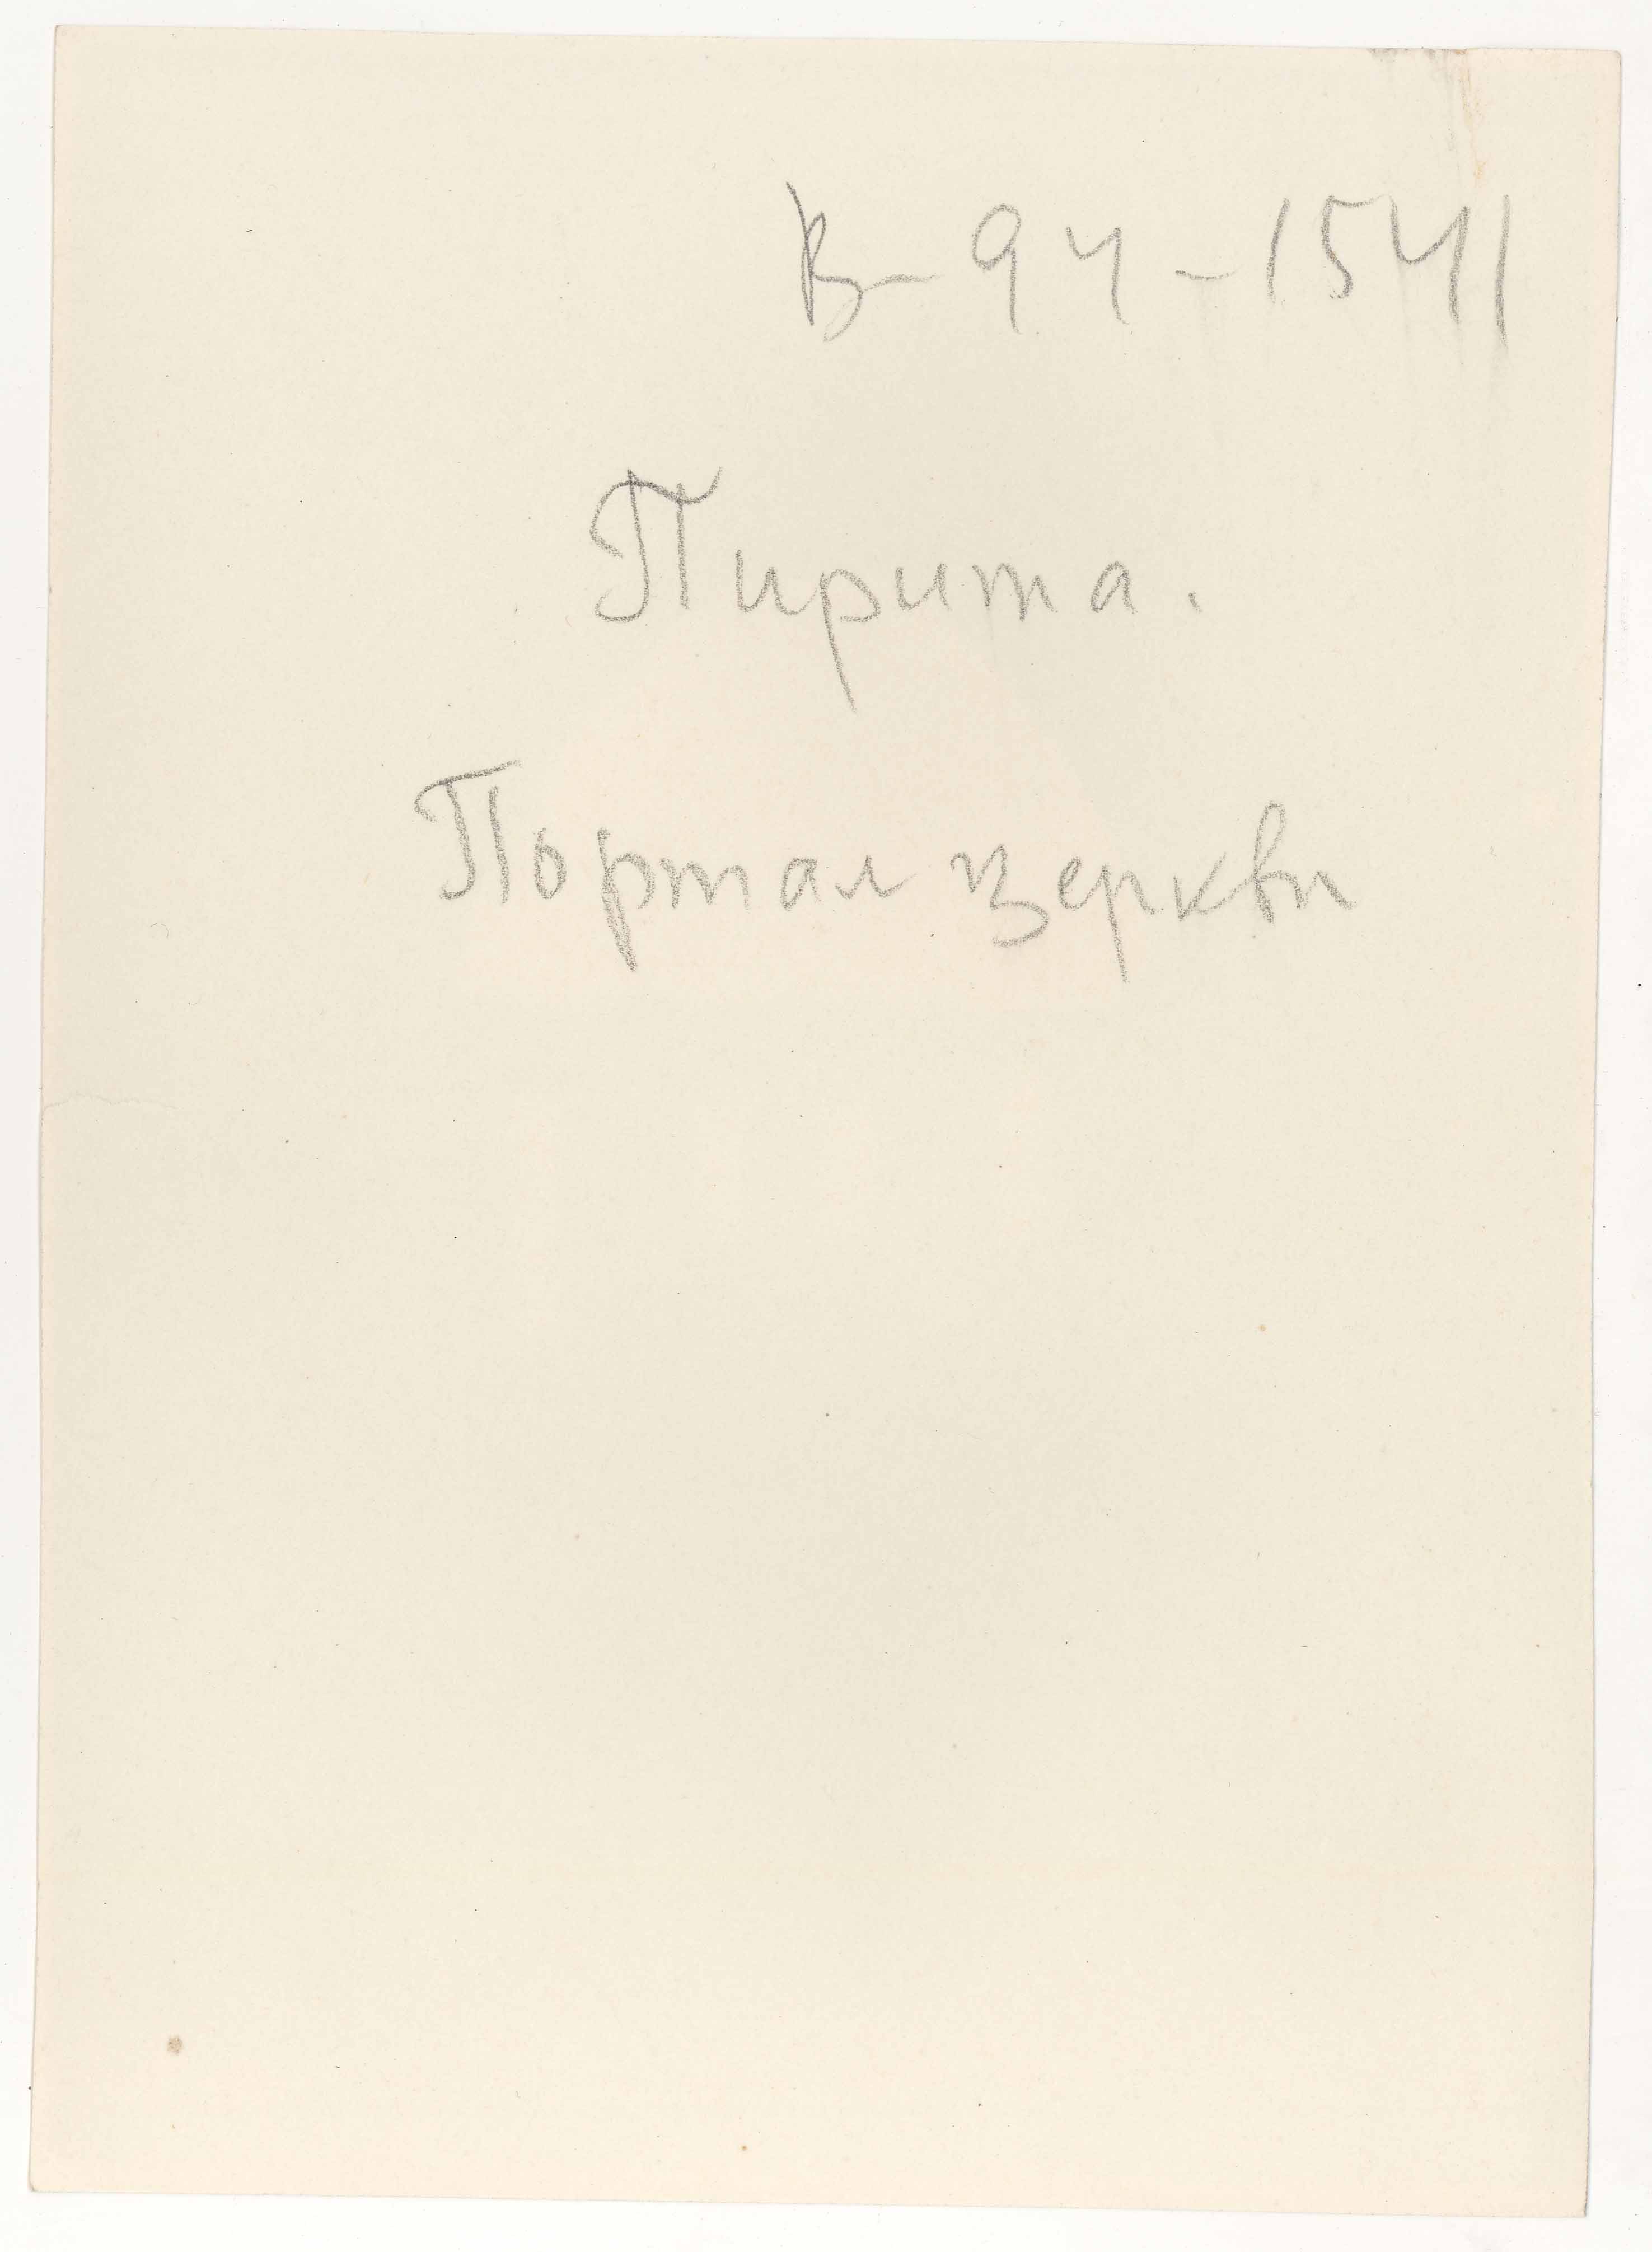 В-94-1541
Пирита.
Портал церкви